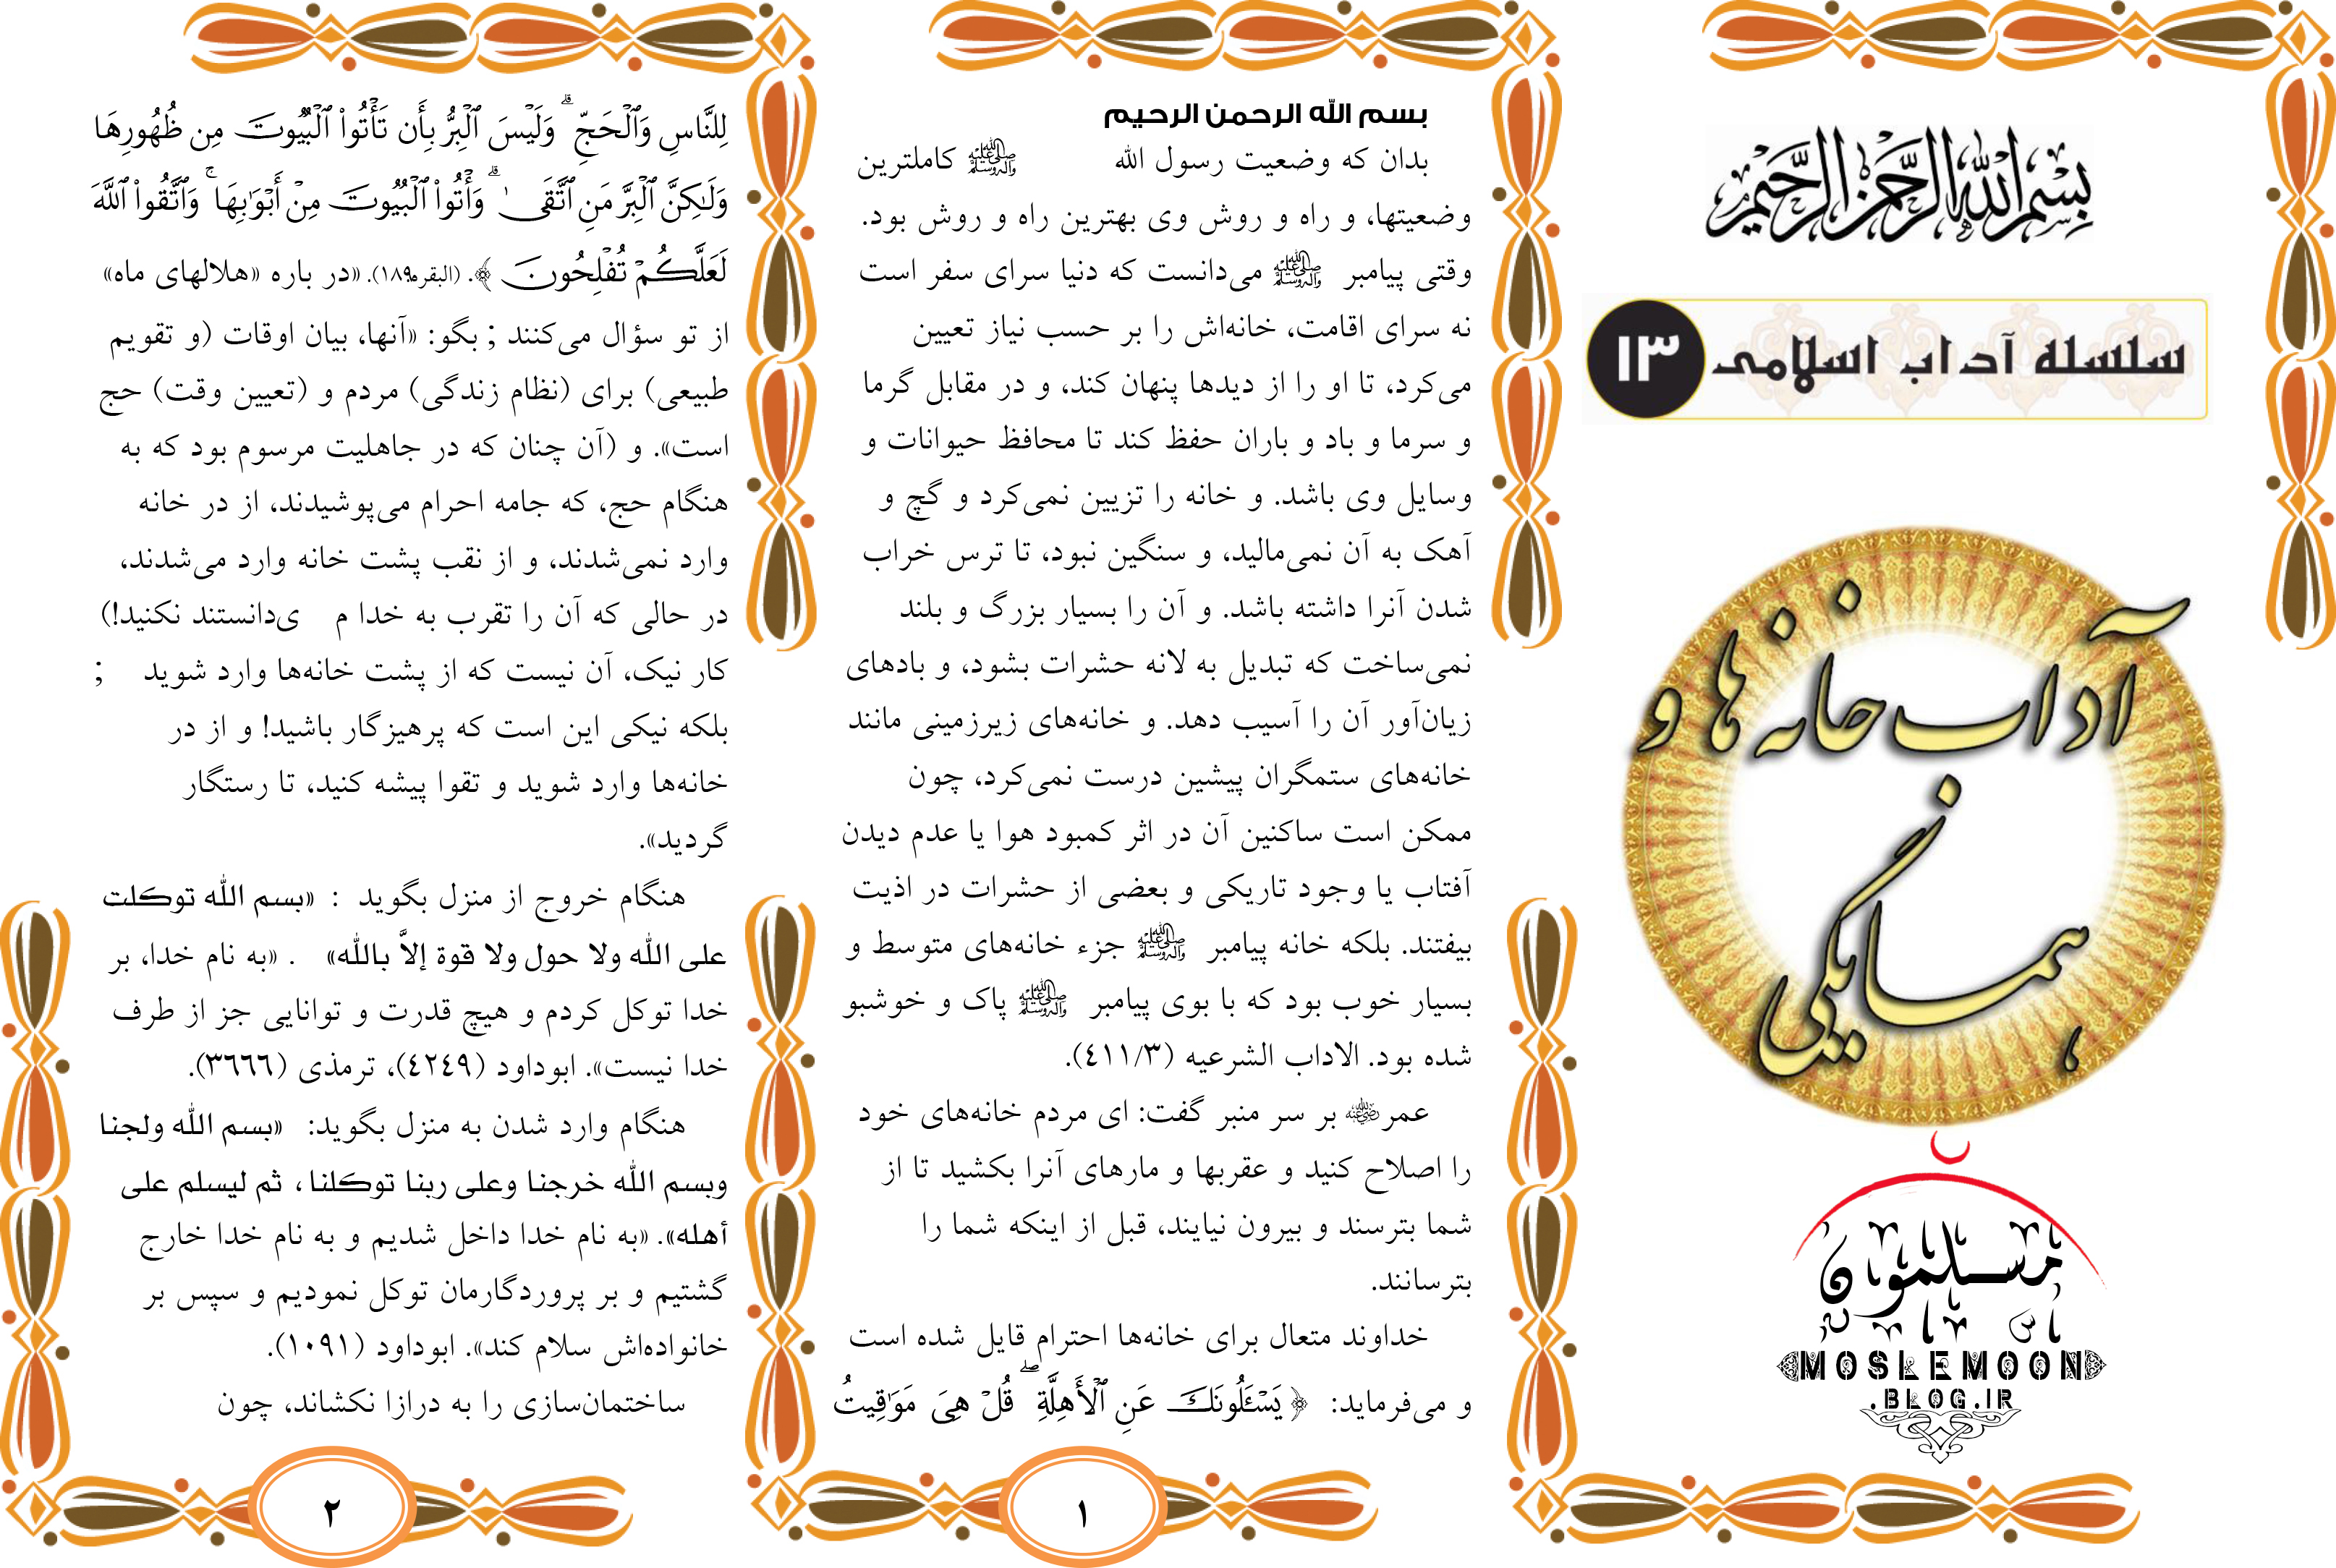 بسم الله الرحمن الرحیم
سلسله آداب اسلامی ۱۳
آداب خانه ها و
همسایگی
مسلمون
MOSLEMOON
.BLOG.IR
بسم الله الرحمن الرحیم
بدان که وضعیت رسول الله ﷺ کاملترین
وضعیتها، و راه و روش وی بهترین راه و روش بود.
وقتی پیامبر ﷺ می‌دانست که دنیا سرای سفر است
نه سرای اقامت، خانه‌اش را بر حسب نیاز تعیین
می‌کرد، تا او را از دیدها پنهان کند، و در مقابل گرما
و سرما و باد و باران حفظ کند تا محافظ حیوانات و
وسایل وی باشد. و خانه را تزیین نمی‌کرد و گچ و
آهک به آن نمی‌مالید، و سنگین نبود، تا ترس خراب
شدن آنرا داشته باشد. و آن را بسیار بزرگ و بلند
نمی‌ساخت که تبدیل به لانه حشرات بشود، و بادهای
زیان‌آور آن را آسیب دهد. و خانه‌های زیرزمینی مانند
خانه‌های ستمگران پیشین درست نمی‌کرد، چون
ممکن است ساکنین آن در اثر کمبود هوا یا عدم دیدن
آفتاب یا وجود تاریکی و بعضی از حشرات در اذیت
بیفتند. بلکه خانه پیامبر ﷺ جزء خانه‌های متوسط و
بسیار خوب بود که با بوی پیامبر ﷺ پاک و خوشبو
شده بود. الاداب الشرعیه (۴۱۱/۳).
عمر رضي الله عنه بر سر منبر گفت: ای مردم خانه‌های خود
را اصلاح کنید و عقربها و مارهای آنرا بکشید تا از
شما بترسند و بیرون نیایند، قبل از اینکه شما را
بترسانند.
خداوند متعال برای خانه‌ها احترام قایل شده است
و می‌فرماید: ﴿ يَسْـَٔلُونَكَ عَنِ ٱلْأَهِلَّةِ ۖ قُلْ هِىَ مَوَٰقِيتُ
۱
لِلنَّاسِ وَٱلْحَجِّ ۗ وَلَيْسَ ٱلْبِرُّ بِأَن تَأْتُوا۟ ٱلْبُيُوتَ مِن ظُهُورِهَا
وَلَـٰكِنَّ ٱلْبِرَّ مَنِ ٱتَّقَىٰ ۗ وَأْتُوا۟ ٱلْبُيُوتَ مِنْ أَبْوَٰبِهَا ۚ وَٱتَّقُوا۟ ٱللَّهَ
لَعَلَّكُمْ تُفْلِحُونَ ﴾. (البقره۱۸۹). «در باره «هلالهای ماه»
از تو سؤال می‌کنند ; بگو: «آنها، بیان اوقات (و تقویم
طبیعی) برای (نظام زندگی) مردم و (تعیین وقت) حج
است». و (آن چنان که در جاهلیت مرسوم بود که به
هنگام حج، که جامه احرام می‌پوشیدند، از در خانه
وارد نمی‌شدند، و از نقب پشت خانه وارد می‌شدند،
در حالی که آن را تقرب به خدا م ی‌دانستند نکنید!)
کار نیک، آن نیست که از پشت خانه‌ها وارد شوید ;
بلکه نیکی این است که پرهیزگار باشید! و از در
خانه‌ها وارد شوید و تقوا پیشه کنید، تا رستگار
گردید».
هنگام خروج از منزل بگوید : «بسم الله توكلت
على الله ولا حول ولا قوة إلاَّ بالله» . «به نام خدا، بر
خدا توکل کردم و هیچ قدرت و توانایی جز از طرف
خدا نیست». ابوداود (۴۲۴۹)، ترمذی (۳۶۶۶).
هنگام وارد شدن به منزل بگوید: «بسم الله ولجنا
وبسم الله خرجنا وعلى ربنا توكلنا، ثم ليسلم على
أهله». «به نام خدا داخل شدیم و به نام خدا خارج
گشتیم و بر پروردگارمان توکل نمودیم و سپس بر
خانواده‌اش سلام کند». ابوداود (۱۰۹۱).
ساختمان‌سازی را به درازا نکشاند، چون
۲